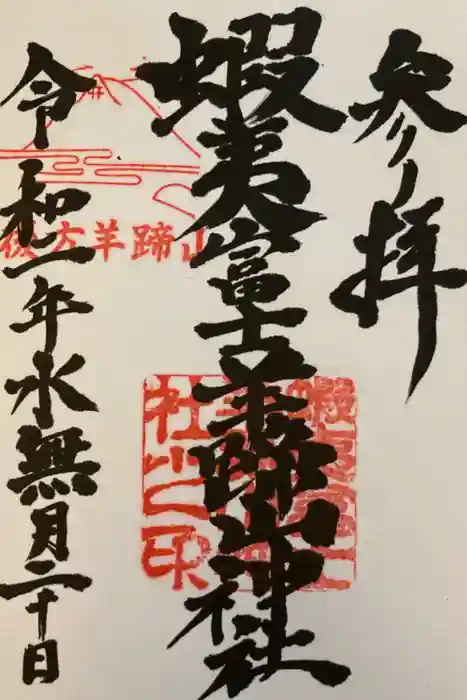 参拝
蝦夷富士羊蹄山神社
令和二年水無月二十日
後方羊蹄山
蝦夷富士
社之印